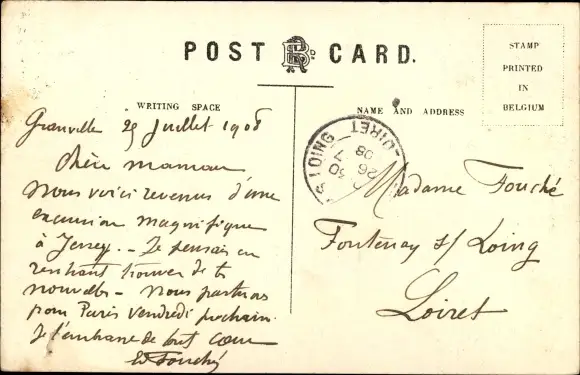 POST CARD.
STAMP
PRINTED
IN
BELGIUM
WRITING SPACE
NAME AND ADDRESS
Granville 25 Juillet 1908
Chère maman
Nous voici revenus d'une
excursion magnifique
à Jersey. – Je pensais en
rentrant trouver de tes
nouvelles – Nous partirons
pour Paris vendredi prochain.
Je t'embrasse de tout cœur
Fouché
LOING
LOIRET
26
7
08
Madame Fouché
Fontenay s/ Loing
Loiret